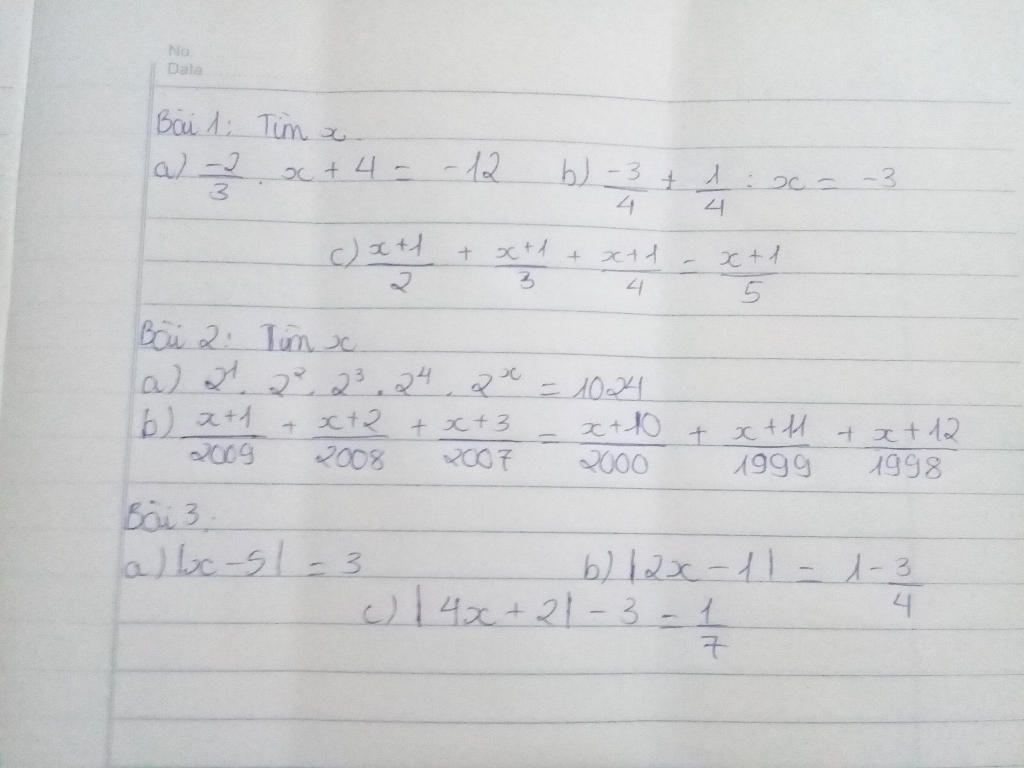 No.
Date
Bài 1: Tìm x
a) -2/3 . x + 4 = -12 b) -3/4 + 1/4 : x = -3
c) x+1/2 + x+1/3 + x+1/4 = x+1/5
Bài 2: Tìm x
a) 2¹ . 2² . 2³ . 2⁴ . 2ˣ = 1024
b) x+1/2009 + x+2/2008 + x+3/2007 = x+10/2000 + x+11/1999 + x+12/1998
Bài 3:
a) |x-5| = 3 b) |2x-1| = 1-3/4
c) |4x+2| - 3 = 1/7